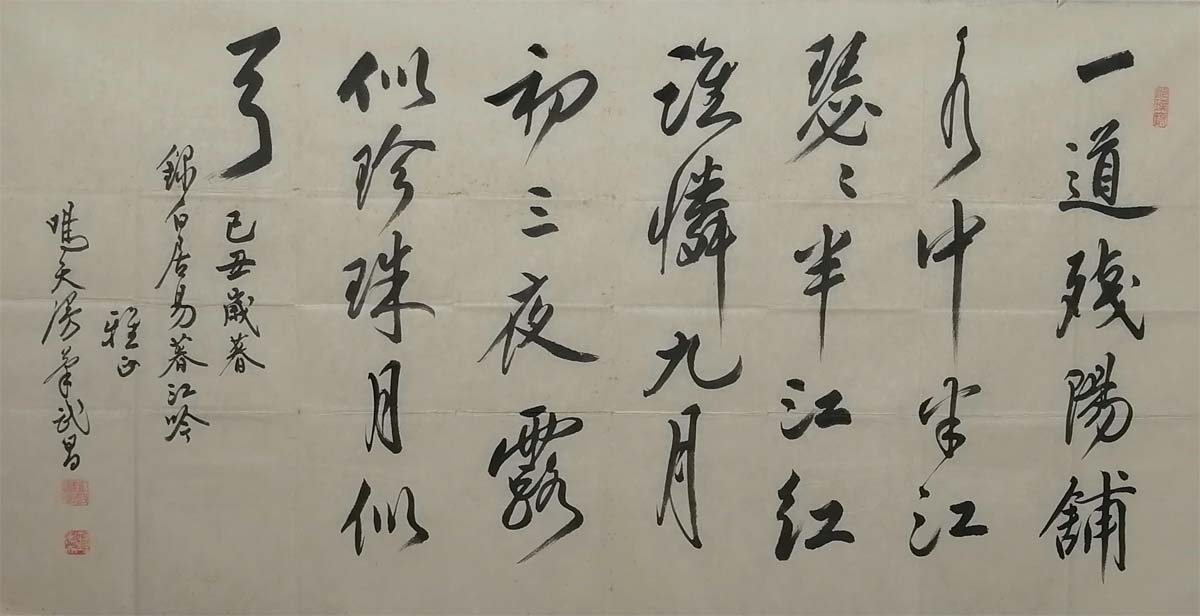 一道殘陽舖
水中半江
瑟〻半江紅
誰憐九月
初三夜露
似珍珠月似
弓
己丑歲暮
錄白居易暮江吟
雅正
天 武昌